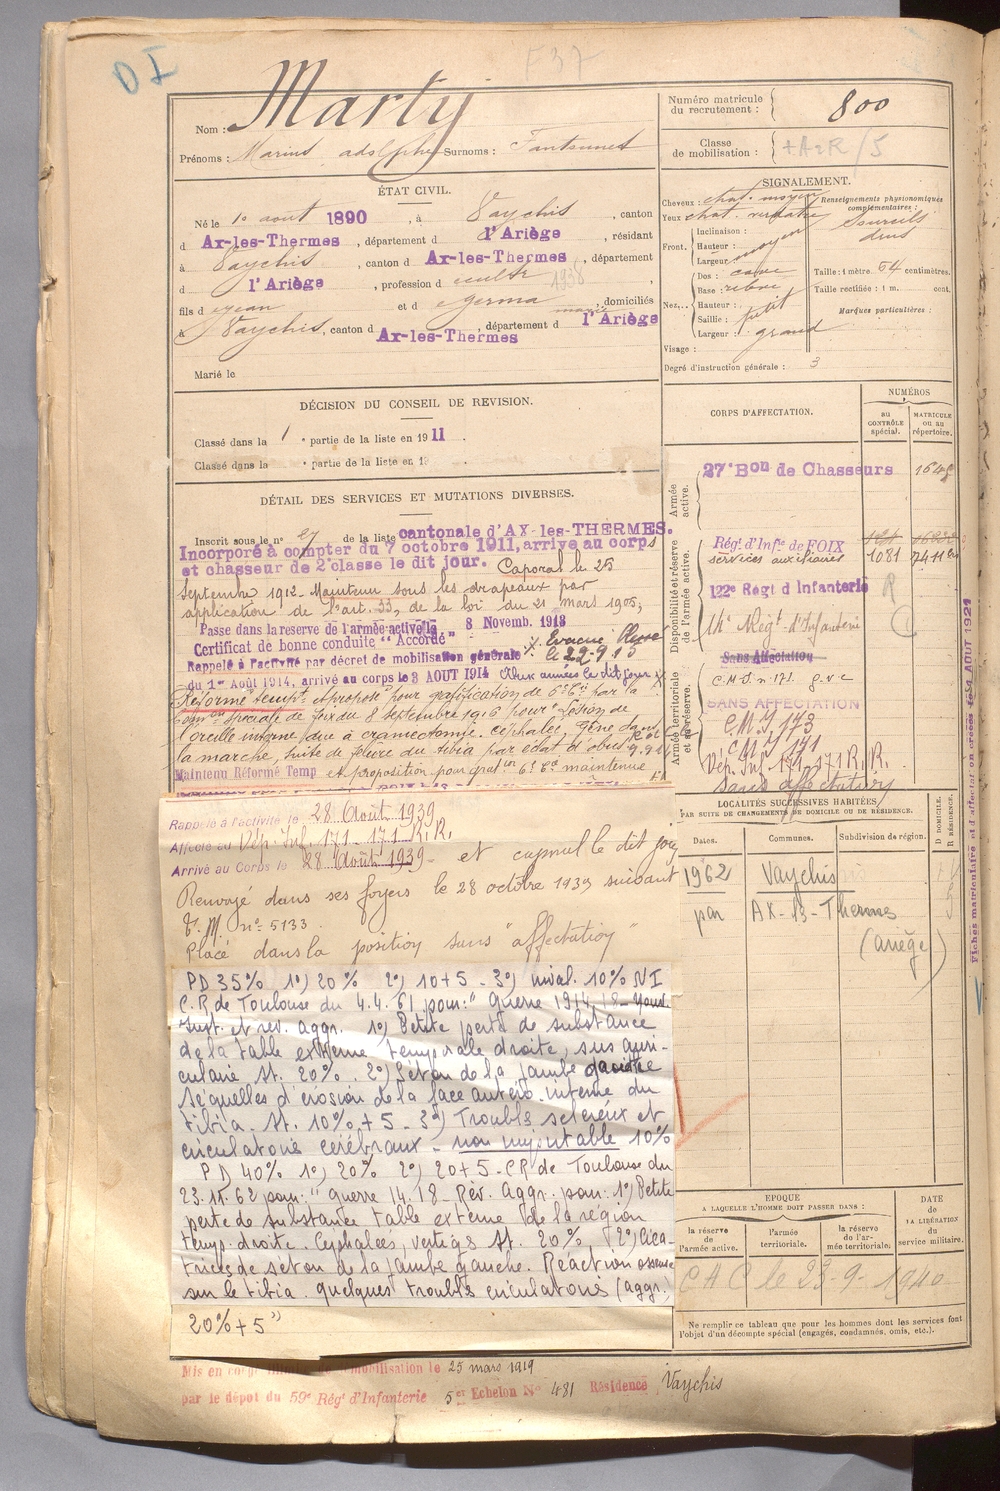 D I
F37
Marty
Nom :
Prénoms : Marius adolphe Surnoms :
Numéro matricule
du recrutement : 800
Classe
de mobilisation :
ÉTAT CIVIL.
Né le 10 août 1890, à Vaychis, canton
d Ax-les-Thermes, département d l'Ariège, résidant
à Vaychis, canton d Ax-les-Thermes, département
d l'Ariège, profession d cultr 1938
fils d Jean et d Germa marie, domiciliés
à Vaychis, canton d Ax-les-Thermes, département d l'Ariège
Marié le
SIGNALEMENT.
Cheveux : chat. moyen
Yeux chat. verdatre
Front. Inclinaison :
Hauteur : moyen
Largeur
Nez. Dos : cave
Base : relevé
Hauteur : petit
Saillie :
Largeur : grand
Visage :
Renseignements physionomiques
complémentaires :
Sourcils
Taille : 1 mètre. 64 centimètres.
Taille rectifiée : 1 m. cent.
Marques particulières :
Degré d'instruction générale : 3
DÉCISION DU CONSEIL DE REVISION.
Classé dans la 1e partie de la liste en 1911.
Classé dans la e partie de la liste en 19
DÉTAIL DES SERVICES ET MUTATIONS DIVERSES.
Inscrit sous le n° 27 de la liste cantonale d'AX-les-THERMES.
Incorporé à compter du 7 octobre 1911, arrive au corps
et chasseur de 2e classe le dit jour. Caporal le 25
Septembre 1912. Maintenu sous les drapeaux par
application de l'art. 33, de la loi du 21 mars 1905,
Passé dans la réserve de l'armée active le 8 Novemb. 1913
Certificat de bonne conduite "Accordé"
Evacué Blessé
le 22-9-15
Rappelé à l'activité par décret de mobilisation générale
du 1er Août 1914, arrivé au corps le 3 AOUT 1914 Aux armées le dit jour
Réformé tempre et proposé pour gratification de 6e Cie par la
Comon spéciale de Foix du 8 septembre 1916 pour "Lésion de
l'oreille interne due à craniectomie. Céphalée, gêne dans
la marche, suite de fêlure du tibia par éclat d'obus
Maintenu Réformé Temp et proposition pour grat on 6e Cie maintenue
CORPS D'AFFECTATION.
NUMÉROS
au
CONTRÔLE
spécial.
MATRICULE
ou au
répertoire.
Armée
active.
27e Bon de Chasseurs
Disponibilité et réserve
de l'armée active.
Régt d'Infie de FOIX
services auxiliaires 1081
122e Regt d Infanterie R
14e Régt d'Infanterie
Armée territoriale
et sa réserve.
Sans Affectation
C.M.I. n° 171 g.v.c
SANS AFFECTATION
C.M.I 173
C.M.I 171
Dép. Inf. 171-171 R.R.
sans affectation
Rappelé à l'activité le 28 Août 1939
Affecté au Dép. Inf. 171-171 R.R.
Arrivé au Corps le 28 Août 1939 - et caporal le dit jour
Renvoyé dans ses foyers le 28 octobre 1939 suivant
T. M. n° 5133.
Placé dans la position sans "affectation"
PD 35% 1°) 20% 2°) 10+5 - 3°) inval. 10% NI
C.R de Toulouse du 4.4.61 pour : "Guerre 1914.18-
et rev. aggr. 1°) Petite perte de substance
de la table externe temporale droite, sus auri-
culaire St. 20%. 2°) Séton de la jambe gauche
séquelles d'érosion de la face antéro-interne du
tibia. St. 10%+5 - 3°) Troubles scléreux et
circulatoires cérébraux - non imputable 10%
PD 40% 1°) 20% 2°) 20+5 - CR de Toulouse du
23.11.62 pour : "Guerre 14.18 - Rév. Aggr. pour : 1°) Petite
perte de substance table externe de la région
temp. droite. Céphalées, vertiges St. 20% 2°) Cica-
trices de seton de la jambe gauche. Réaction osseuse
sur le tibia. quelques troubles circulatoires (aggr.)
20%+5"
LOCALITÉS SUCCESSIVES HABITÉES,
PAR SUITE DE CHANGEMENTS DE DOMICILE OU DE RÉSIDENCE.
Dates. Communes. Subdivision de région.
D DOMICILE.
R RÉSIDENCE.
1962 Vaychis
par AX-les-Thermes
(Ariège)
EPOQUE
A LAQUELLE L'HOMME DOIT PASSER DANS :
la réserve
de
l'armée active.
l'armée
territoriale.
la réserve
de l'ar-
mée territoriale.
DATE
de
LA LIBÉRATION
du
service militaire.
CAC le 23-9-1940
Ne remplir ce tableau que pour les hommes dont les services font
l'objet d'un décompte spécial (engagés, condamnés, omis, etc.).
Mis en congé illimité de démobilisation le 25 mars 1919
par le dépôt du 59e Régt d'Infanterie 5er Echelon No 481 Résidence Vaychis